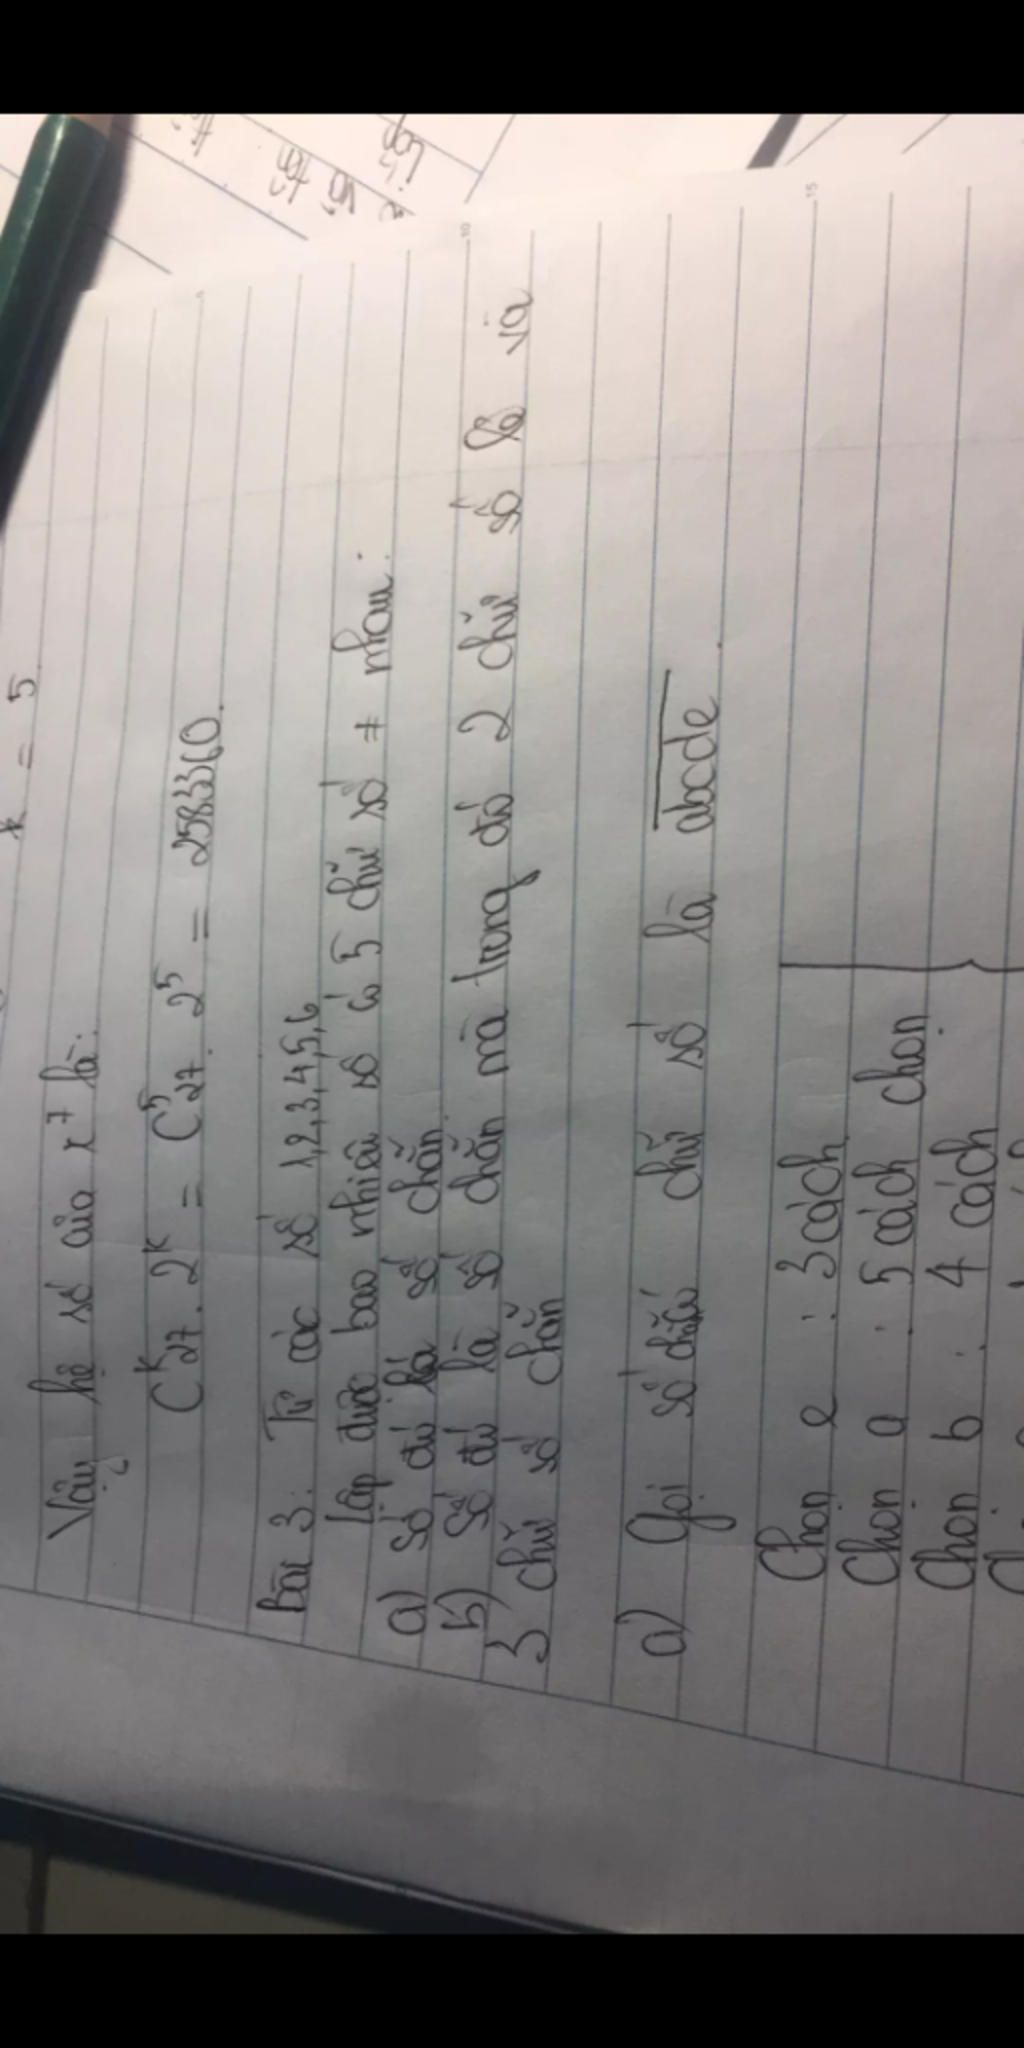 k = 5
Vậy hệ số của x⁷ là:
Cᵏ₂₇ . 2ᵏ = C⁵₂₇ . 2⁵ = 2583360.
Bài 3: Từ các số 1,2,3,4,5,6
lập được bao nhiêu số có 5 chữ số ≠ nhau:
a) Số đó là số chẵn
b) Số đó là số chẵn mà trong đó 2 chữ số lẻ và
3 chữ số chẵn
a) Gọi số chẵn chữ số là abcde.
Chọn e : 3 cách
Chọn a : 5 cách chọn
Chọn b : 4 cách